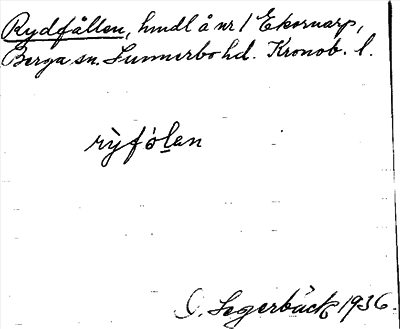 Rydfållen, hmdl å nr 1 Ekornarp,
Berga sn. Sunnerbo hd. Kronob. l.
rỳfo̊l̠an
S. Segerbäck 1936.